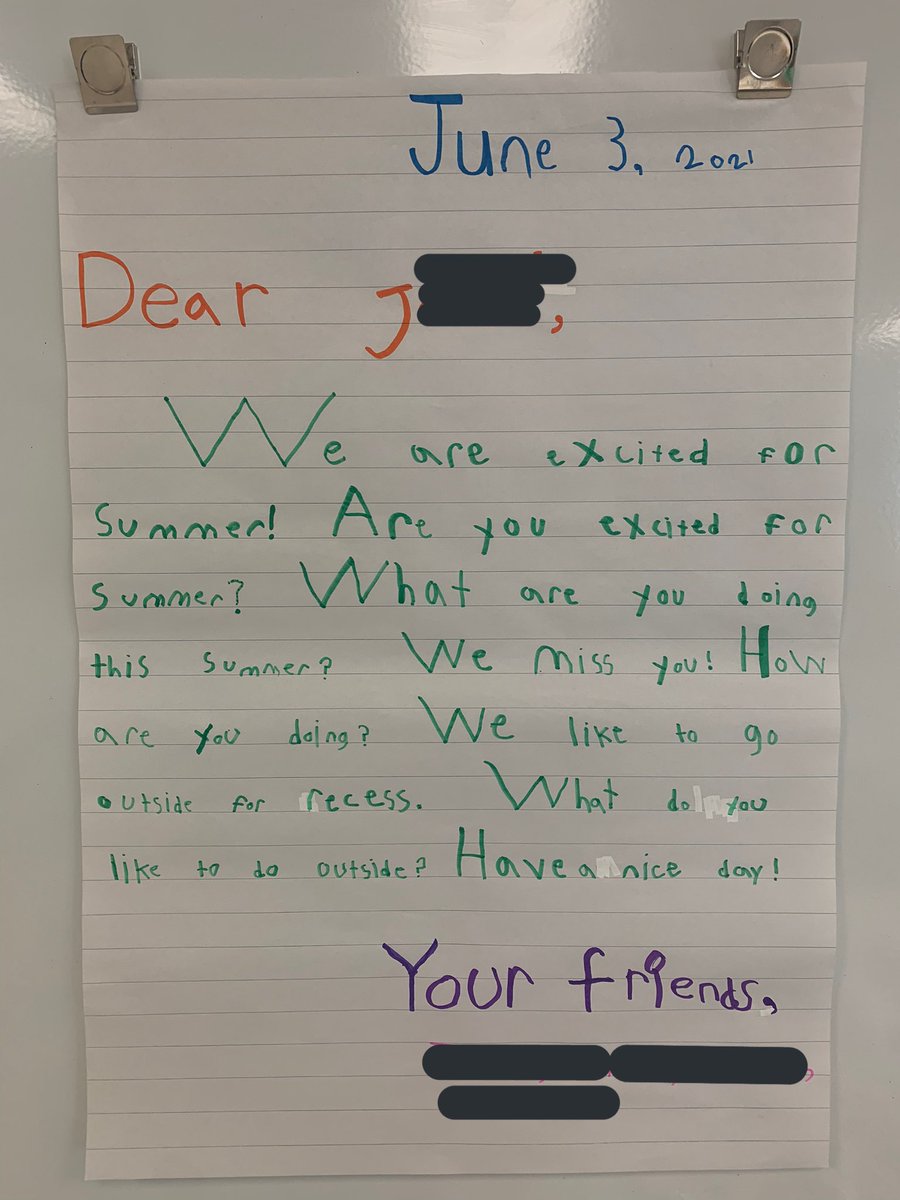 June 3, 2021
Dear J ,
We are excited for
Summer! Are you excited for
summer? What are you doing
this summer? We miss you! How
are you doing? We like to go
outside for recess. What do you
like to do outside? Have a nice day!
Your friends,